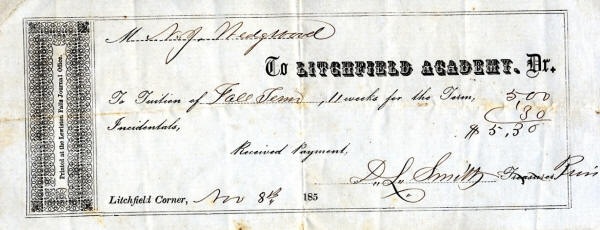 Printed at the Lewiston Falls Journal Office.
M N. J. Wedgwood
To LITCHFIELD ACADEMY. Dr.
To Tuition of Fall Term, 11 weeks for the Term, 5,00
Incidentals, 30
$ 5,30
Received Payment,
D. L. Smith Treasurer Prin
Litchfield Corner, Nov 8th 185